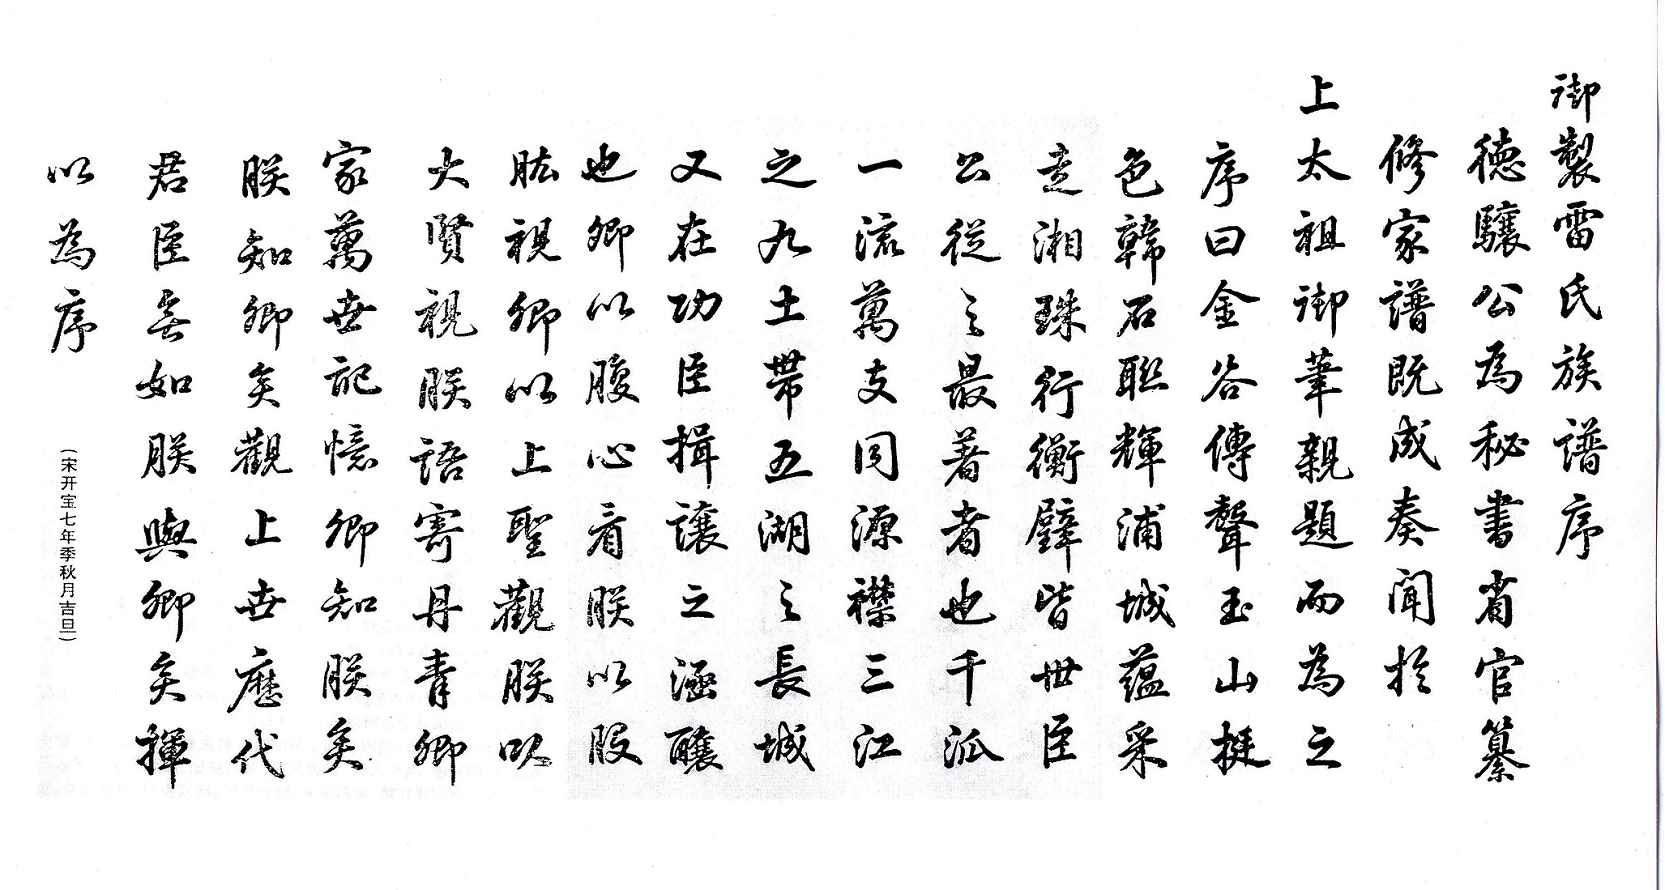 御製雷氏族譜序
德驤公為秘書省官纂
修家譜既成奏聞於
上太祖御筆親題而為之
序曰金谷傳聲玉山挺
色韓石聯輝浦城蘊采
壹湘珠行衡璧皆世臣
公從之最著者也千派
一流萬支同源襟三江
之九土帶五湖之長城
又在功臣揖讓之涵釀
也卿以腹心看朕以股
肱視卿以上聖觀朕以
大賢視朕語寄丹青卿
家萬世記憶卿知朕矣
朕知卿矣觀上世歷代
君臣無如朕與卿矣揮
以為序
(宋开宝七年季秋月吉旦)